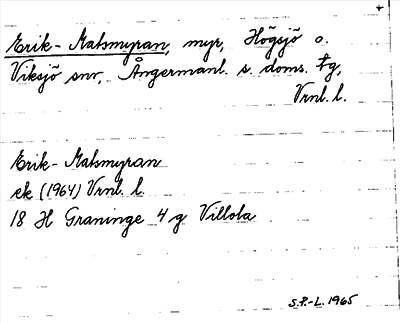 +
Erik-Matsmyran, myr, Högsjö o.
Viksjö snr, Ångermanl. s. doms. fg,
Vrnl. l.
Erik-Matsmyran
ek (1964) Vrnl. l.
18 H Graninge 4 g Villola
S.P.-L. 1965